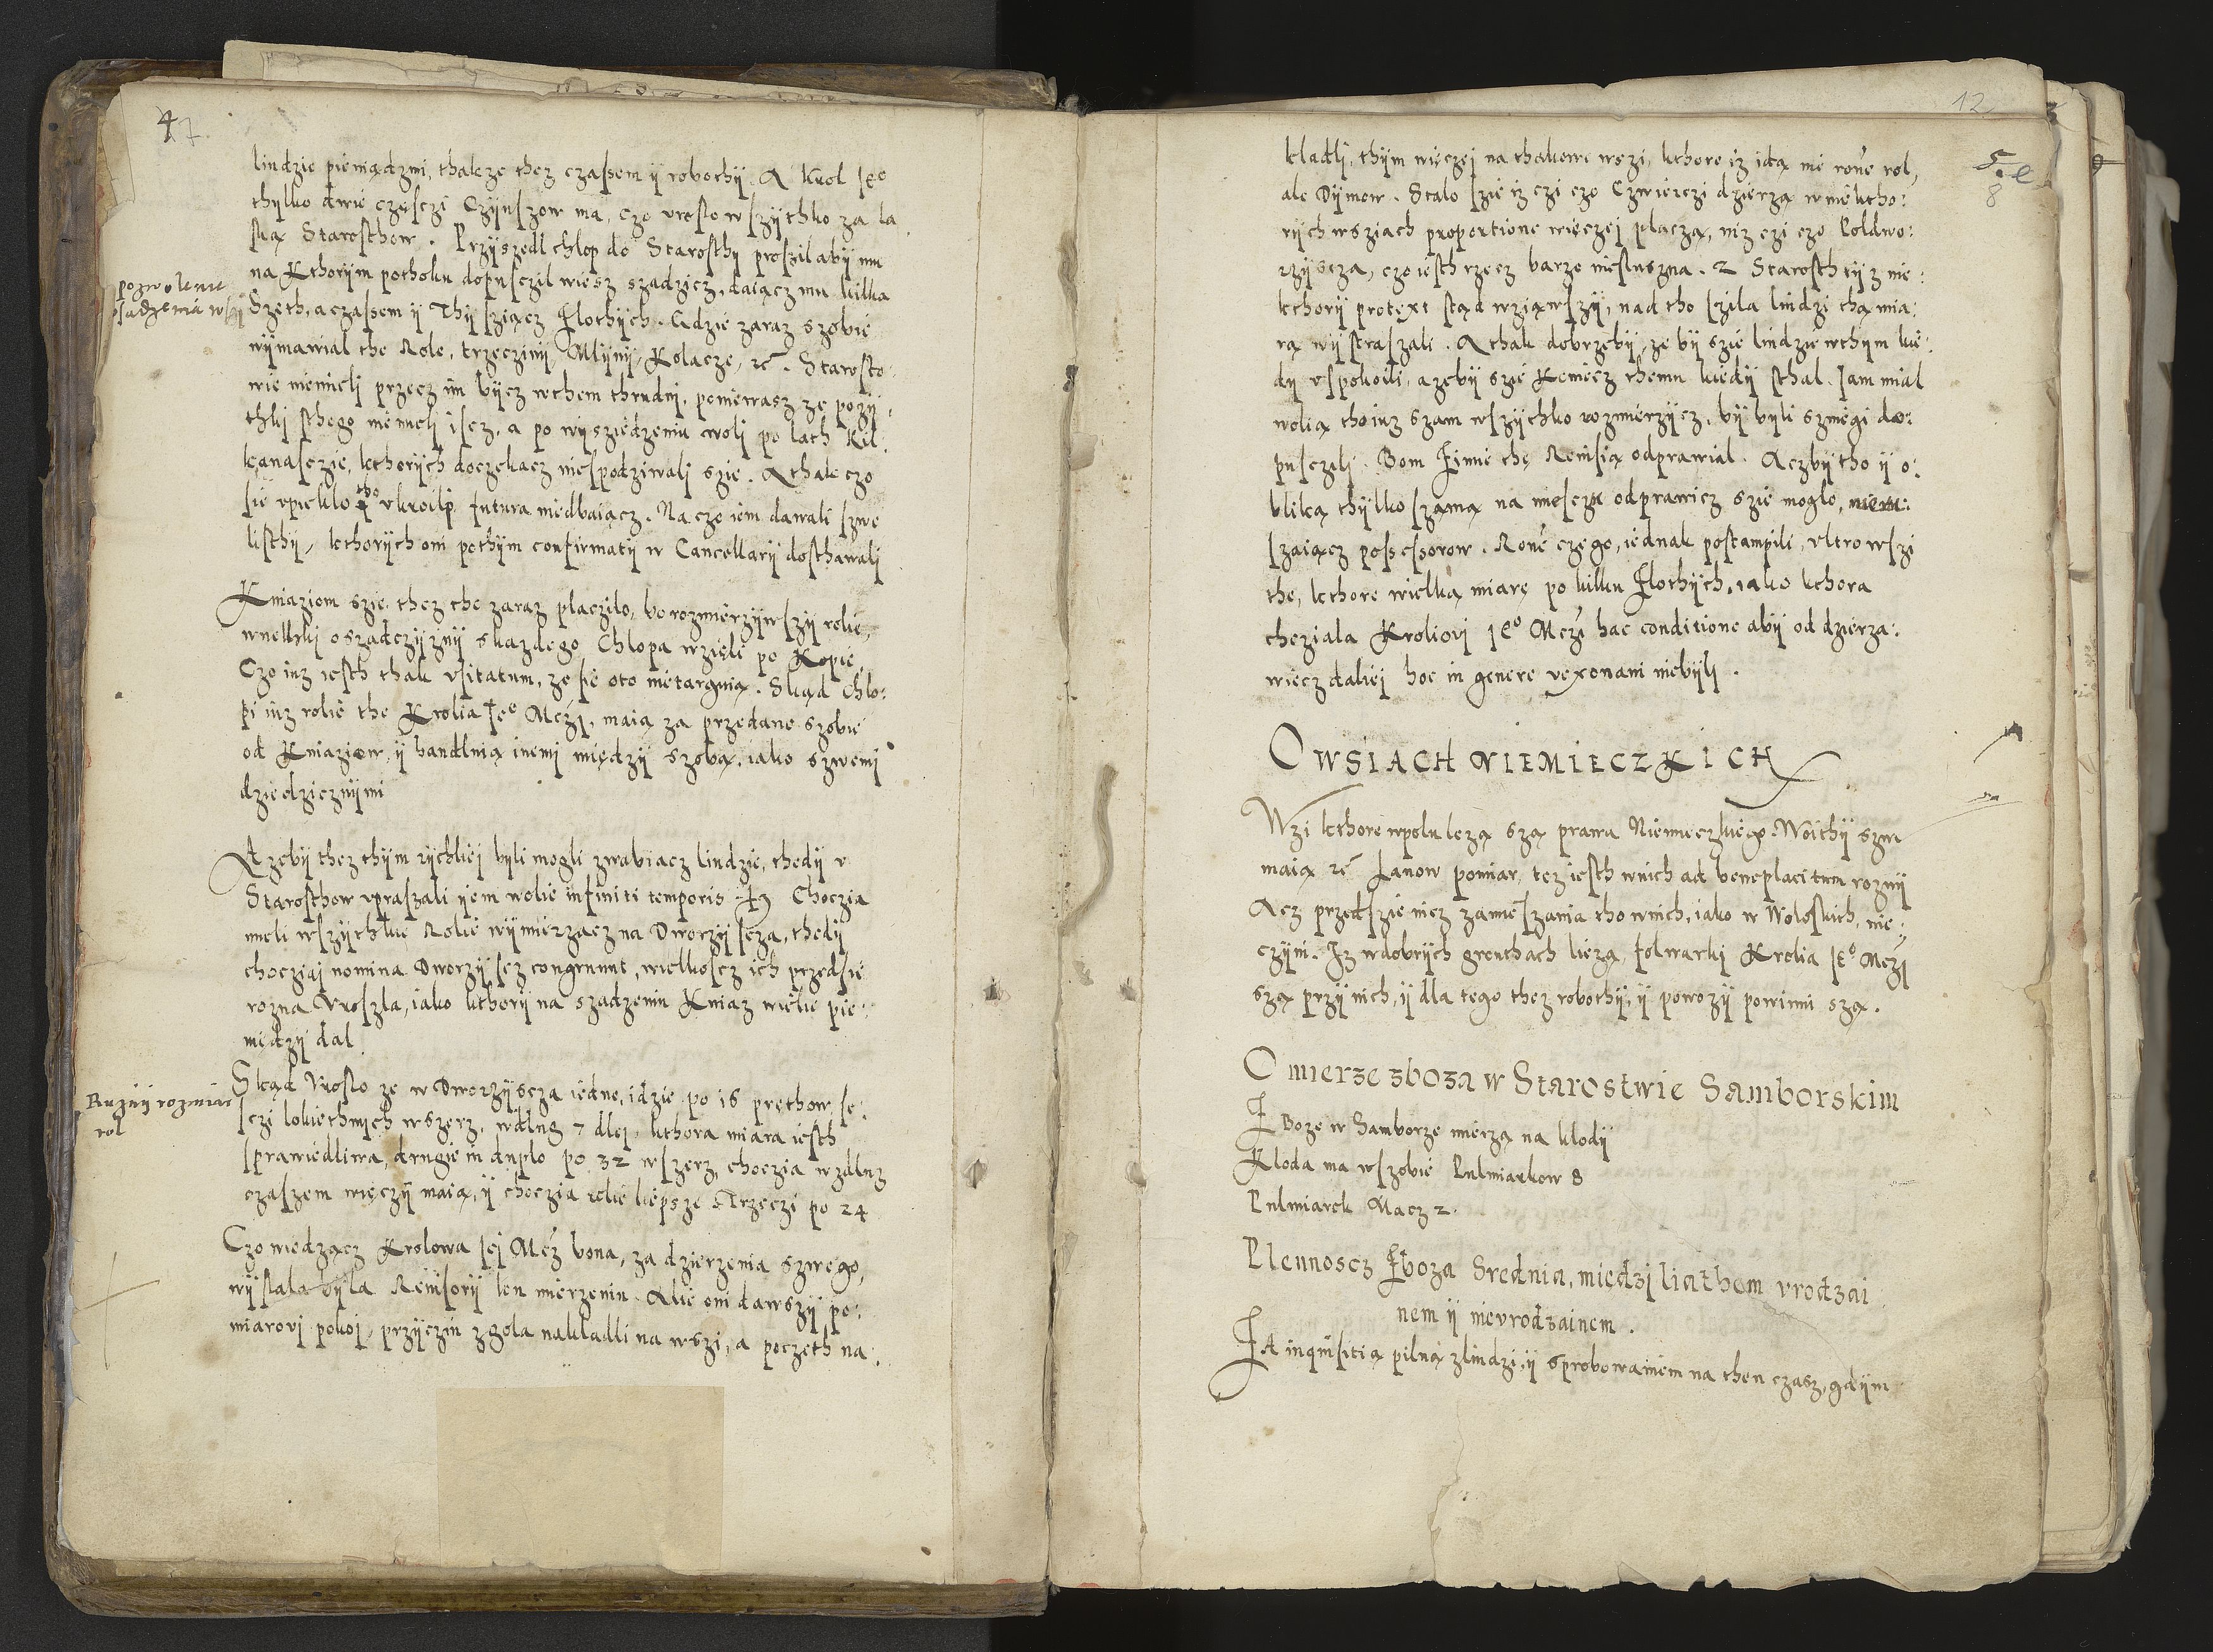 47.
lindzie pieniądzmi, thakze thez czassem ÿ robothÿ. A krol Ie͠o
thÿlko dwie częsczi Czÿnszow ma, czo vrosło wszÿthko za ła
ską Starosthow. Przÿszedl chłop do Starosthÿ prosził abÿ mu
na Kthorÿm pothoku dopusczil wiesz szadzicz, daiącz mu kilka
Szeth, a czassem ÿ Thÿsziącz Złothÿch. Gdzie zaraz szobie
wÿmawiał the Role, trzecziny, Młÿnÿ, Kołacze, etc. Starosto
wie niemieli przecz im bÿcz wthem thrudni, poniewasz ze pozÿ:
thki sthego niemieli iscz, a po wÿsziedzeniu woli po lath kil
kanasczie, kthorÿch doczekacz niespodziwali szie. A thak czo
sie vpiekło tho vkroili, futura niedbaiącz. Na czo iem dawali szwe
listhÿ, kthorÿch oni pothÿm confirmatÿ w Cancellarÿ dosthawali
pozwolenie
osadzenia wsÿ
Kniaziom szie thez the zaraz placziło, bo rozmierzÿwszÿ rolie,
wnetki oszadczÿznÿ skazdego Chłopa wzięli po Kopie,
Czo iuz iesth thak vsitatum, ze sie oto nietargnią. Skąd chło:
pi iuz rolie the Krolia Ie͠o Mczi, maią za przedane szobie
od Kniaziow, ÿ handluią inemi miedzÿ szobą, iako szwemi
dziedzicznÿmi
A zebÿ thez thÿm rÿchliei bÿli mogli zwabiacz lindzie, thedÿ v
Starosthow vpraszali iem wolie infiniti temporis. Choczia
mieli wszÿthkie Rolie wÿmierzacz na Dworzÿscza, thedÿ
chocziai nomina Dworzÿscz congruunt, wielkoscz ich przedsie
rozna Vroszla, iako kthorÿ na szadzeniu Kniaz wielie pie:
niedzÿ dal
Ruznÿ rozmiar
rol
Skąd Vrosło ze w Dworzÿscza iedne, idzie po 16 pręthow sze:
sczi lokiethnich wszerz, wdlug 7 dlei, kthora miara iesth
sprawiedliwa, drugie in duplo po 32 wszerz, choczia wzdluz
czaszem więczÿ maią, ÿ choczia rolie liepsze. Trzeczi po 24
Czo wiedzącz Krolowa Iei Mcz bona, za dzierzenia szwego,
wÿsłala bÿla Reuisorÿ ku mierzeniu. Alie oni dawszÿ po:
miarovi pokoi, przÿczin zgola nakładli na wszi, a poczeth na:
12
5.
8
kladli, thÿm więczei na thakowe wszi, kthore iz idą nie ro͠ne rol,
ale Dÿmow. Stało szie iz czi czo Czwierczi dzierzą w niektho:
rÿch wsziach proportione więczei placzą, niz czi czo Poldwo:
rzÿscza, czo iesth rzecz barzo niesłuszna. z Starosth tÿz nie:
kthorÿ protext stąd wziąwszÿ, nad tho szila lindzi thą mia:
rą wÿstraszali. A thak dobrzebÿ, ze bÿ szie lindzie wthÿm kie:
dÿ vspokoili, a zebÿ szie Koniecz themu kiedÿ sthal. Iam mial
wolią tho iuz szam wszÿthko rozmierzÿcz, bÿ bÿli szniegi do:
pusczili. Bom Zimie thę Reuisią odprawial. Aczbÿ tho ÿ o:
bliką thÿlko szamą na miesczu odprawicz szie mogło, nieru:
szaiącz possessorow. Ro͠ne czego, iednak postampili, vltro wszi
the, kthore wielką miarę po kilku Złothÿch, iako kthora
chcziala Kroliovi Ie͠o Mczi hac conditione abÿ od dzierza:
wiecz daliei hoc in genere vexovani niebÿli.
O WSIACH NIEMIECZKICH
Wszi kthore wpolu lezą szą prawa Niemieczkiego. Woithÿ szwe
maią etc Lanow pomiar, tez iesth wnich ad beneplacitum roznÿ
Acz przedszie nicz zamieszania tho wnich, iako w Wołoskich, nie:
czÿni. Iz wdobrÿch grunthach liezą, folwarki Krolia Ie͠o Mczi
szą przÿ nich, ÿ dla tego thez robothÿ, ÿ powozÿ powinni szą.
O mierze zboza w Starostwie Samborskim
Zboze w Samborze mierzą na kłodÿ
Kłoda ma wszobie Pulmiarkow 8
Pulmiarek Macz 2.
Plennoscz Zboza Srednia, miedzi liathem vrodzai
nem ÿ nievrodzainem.
ZA inquisitią pilną zlindzi, ÿ sprobowaniem na then czasz, gdÿm